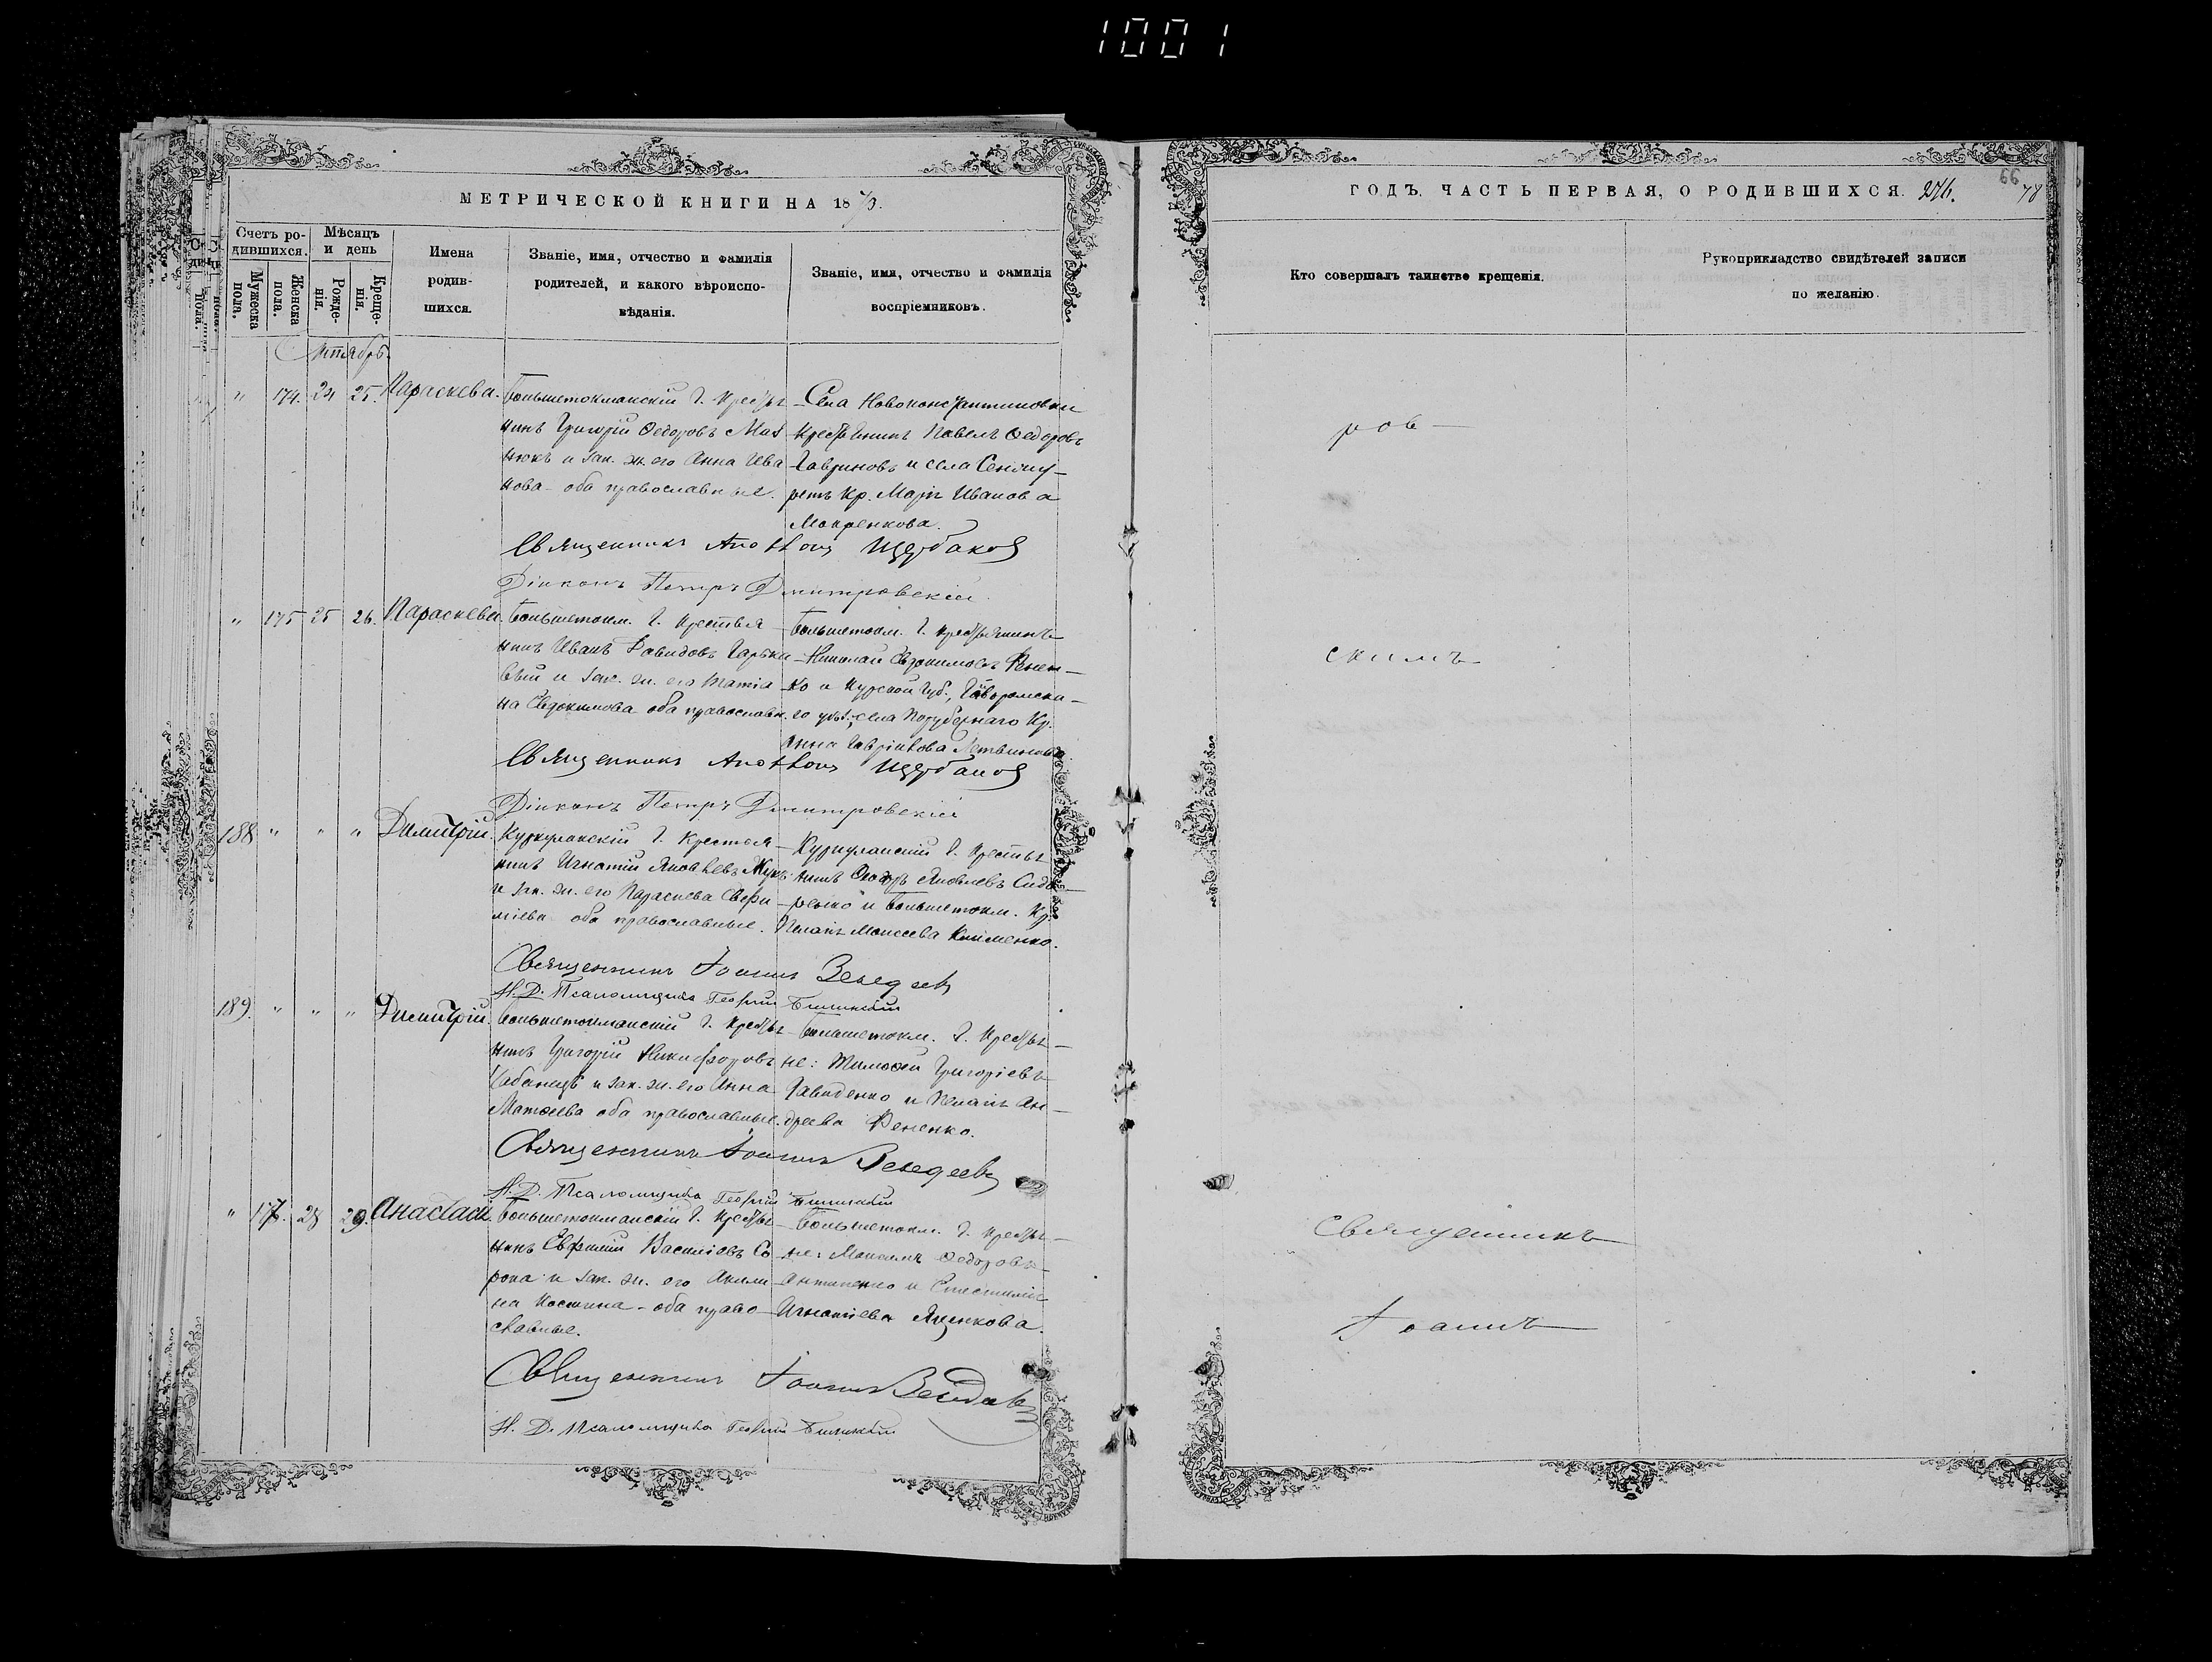 1001
МЕТРИЧЕСКОЙ КНИГИ НА 18
Счетъ ро-
дившихся.
Мужеска
пола.
Женска
пола.
Мѣсяцъ
и день
Рожде-
нія.
Креще-
нія.
Имена
родив-
шихся.
Званіе, имя, отчество и фамилія
родителей, и какого вѣроиспо-
вѣданія.
Званіе, имя, отчество и фамилія
воспріемниковъ.
Октябрь
" 174. 24 25. Параскева.
Большетокмакскій Г. Крестья
нинъ Григорій Ѳедоровъ
и зак. ж. его Анна Ива
нова - оба православные.
Села Новоконстантиновки
Крестьянинъ Павелъ Ѳедоровъ
Гавриновъ и села
Кр. Марія Иванова
Мокренкова.
Священникъ Щербаковъ
Діаконъ Петръ Дмитровскій
" 175 25 26. Параскева.
Большетокм. Г. Крестья
нинъ Иванъ Давидовъ
и зак. ж. его Татіа
на Евдокимова оба православн.
Большетокм. Г. Крестьянинъ
Николай Евдокимовъ Фенен-
ко и Курской Губ.,
го уѣз., села Кр.
Анна
Священникъ Щербаковъ
Діаконъ Петръ Дмитровскій
188 " " " Димитрій.
Куркулакскій Г. Крестья
нинъ Игнатій Яковлевъ Жукъ
и зак. ж. его Параскева Евфи
міева оба православные.
Куркулакскій Г. Крестья
нинъ Ѳеодоръ Яковлевъ Сидо-
ренко и Большетокм. Кр.
Пелагія Моисеева Клименко.
Священникъ Іоаннъ Зеведеевъ
И. Д. Псаломщика Георгій
189. " " " Димитрій.
Большетокмакскій Г. Крестья
нинъ Григорій Никифоровъ
Чабанецъ и зак. ж. его Анна
Матѳеева оба православные.
Большетокм. Г. Крестья-
не: Тимоѳей Григоріевъ
Давиденко и Пелагія Ан-
дреева Фененко.
Священникъ Іоаннъ Зеведеевъ
И. Д. Псаломщика Георгій
" 176. 28 29. Анастасія.
Большетокмакскій Г. Крестья
нинъ Евфимій Василіевъ Со
рока и зак. ж. его Акили
на Костина - оба право
славные.
Большетокм. Г. Крестья-
не: Максимъ Ѳедоровъ
Антипенко и
Игнатіева Яценкова.
Священникъ Іоаннъ Зеведеевъ
И. Д. Псаломщика Георгій
ГОДЪ. ЧАСТЬ ПЕРВАЯ, О РОДИВШИХСЯ.
66
78
Кто совершалъ таинство крещенія.
Рукоприкладство свидѣтелей записи
по желанію.
ров
скимъ
Священникъ
Іоаннъ